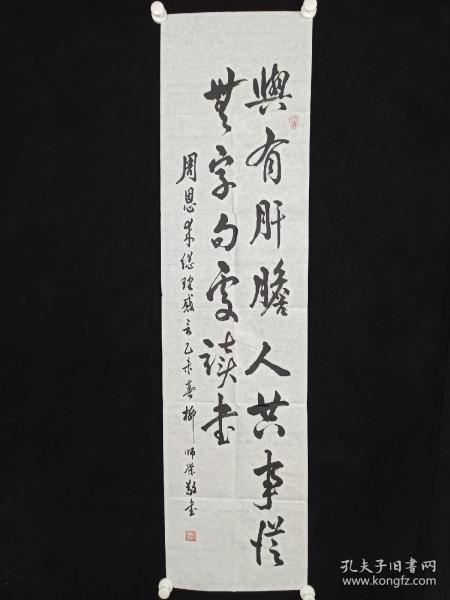 與有肝膽人共事從
無字句處讀書
周恩來總理感言乙未春柳師榮敬書
孔夫子旧书网
www.kongfz.com